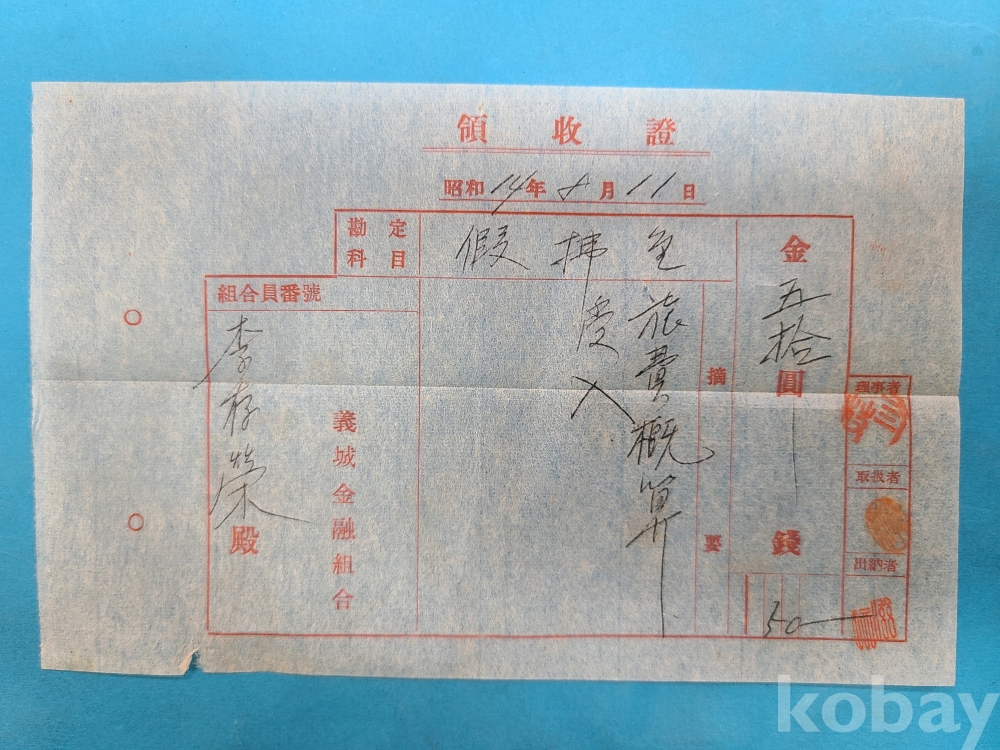 領收證
昭和14年8月11日
金五拾圓
錢
50
勘定科目
假拂金
摘要
旅費概算
戻入
組合員番號
李存榮殿
義城金融組合
理事者
取扱者
出納者
kobay